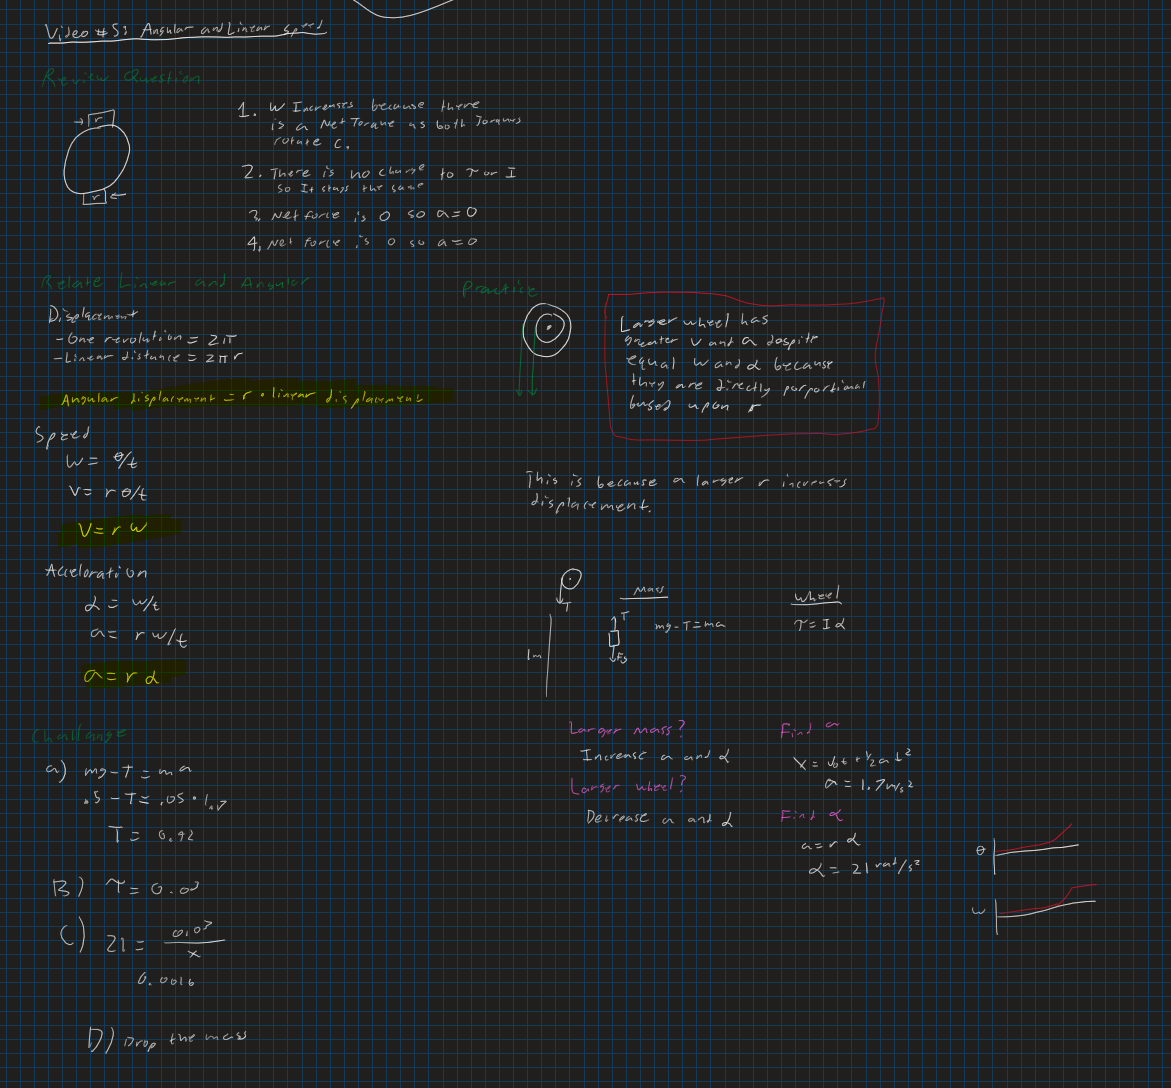 Video #5: Angular and Linear speed
Review Question
r
r
1. W Increases because there
is a Net Torque as both Torques
rotate C.
2. There is no change to τ or I
so It stays the same
3. Net force is 0 so a=0
4. Net force is 0 so a=0
Relate Linear and Angular
Displacement
- One revolution = 2π
- Linear distance = 2πr
Angular displacement = r • linear displacement
Speed
W = θ/t
V = r θ/t
V = r w
Acceloration
α = w/t
a = r w/t
a = r α
Practice
Larger wheel has
greater V and a despite
equal W and α because
they are directly porportional
based upon r
This is because a larger r increases
displacement.
T
1m
Mass
T
Fg
mg-T=ma
Wheel
τ = I α
Larger mass?
Increase a and α
Larger wheel?
Decrease a and α
Find a
X = v₀t + 1/2 a t²
a = 1.7 m/s²
Find α
a = r α
α = 21 rad/s²
θ
w
Challange
a) mg-T = ma
.5 - T = .05 • 1.7
T = 0.42
B) τ = 0.03
C) 21 = 0.03/x
0.0016
D) Drop the mass